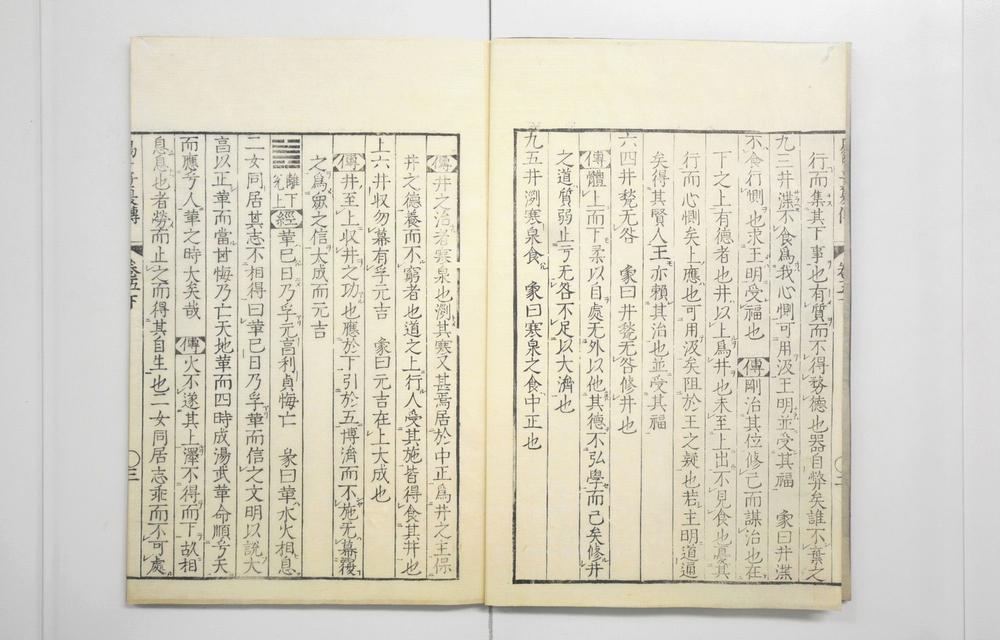 行而集其下事也有質而不得務德也器自弊矣誰不棄之
九三井渫不食為我心惻可用汲王明並受其福　象曰井渫
不食行惻也求王明受福也　傳剛治其位修己而謀治也在
下之上有德者也井以上為井也未至上出不見食也憂其
行而心惻矣上應也可用汲矣阻於王之疑也若主明道通
矣得其賢人王亦賴其治也並受其福
六四井甃无咎　象曰井甃无咎修井也
傳體上而下柔以自處无外以他其德不弘學而己矣修井
之道質弱止亏无咎不足以大濟也
九五井洌寒泉食　象曰寒泉之食中正也
傳井之治者寒泉也洌其寒又甚焉居於中正為井之主保
井之德養而不窮者也道之上行人受其施皆得食其井也
上六井收勿幕有孚元吉　象曰元吉在上大成也
傳井至上收井之功也應於下引於五博濟而不施无幕覆
之為眾之信大成而元吉
離下兌上　經革巳日乃孚元亨利貞悔亡　彖曰革水火相息
二女同居其志不相得曰革已日乃孚革而信之文明以說大
亨以正革而當其悔乃亡天地革而四時成湯武革命順亏天
而應亏人革之時大矣哉　傳火不遂其上澤不得而下故相
息息也者勞而止之而得其自生也二女同居志乖而不可處
卷五下
三